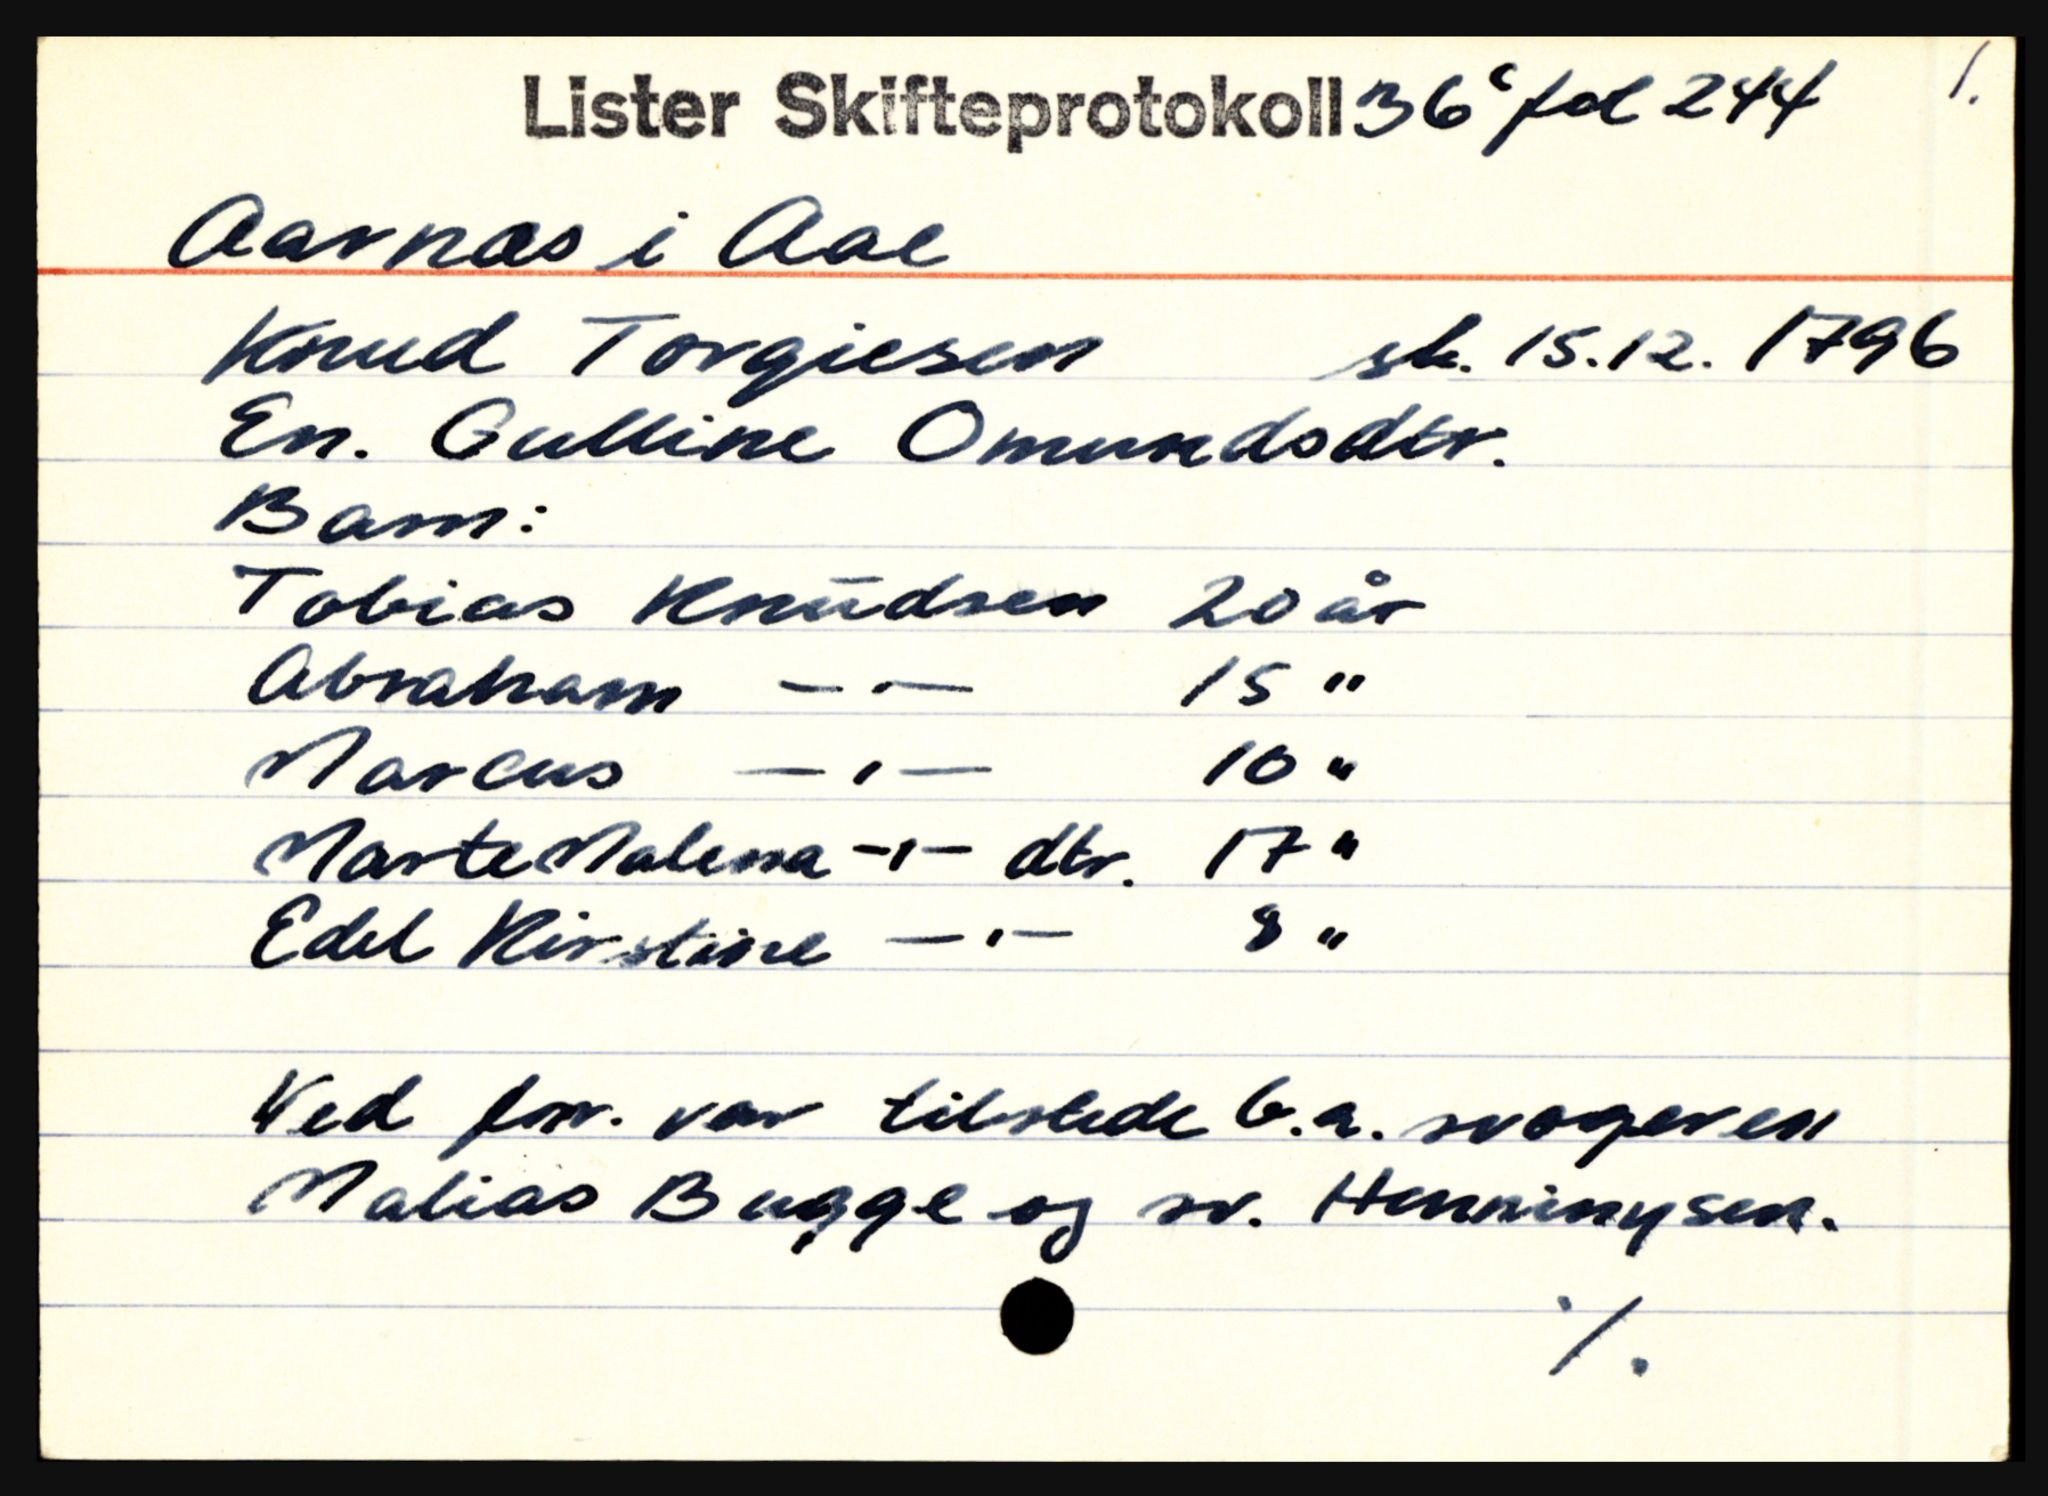 Lister Skifteprotokoll 36c fol 244 1.
Aarnæs i Aae
Knud Torgiesen sk. 15.12. 1796
En. Gulline Omundsdtr.
Barn:
Tobias Knudsen 20 år
Abraham -"- 15 "
Marcus -"- 10 "
Marte Malena -"- dtr. 17 "
Edel Kirstine -"- 8 "
Ved forr. var tilstede b.a. svogeren
Matias Bugge og sv. Henningsen.
./.